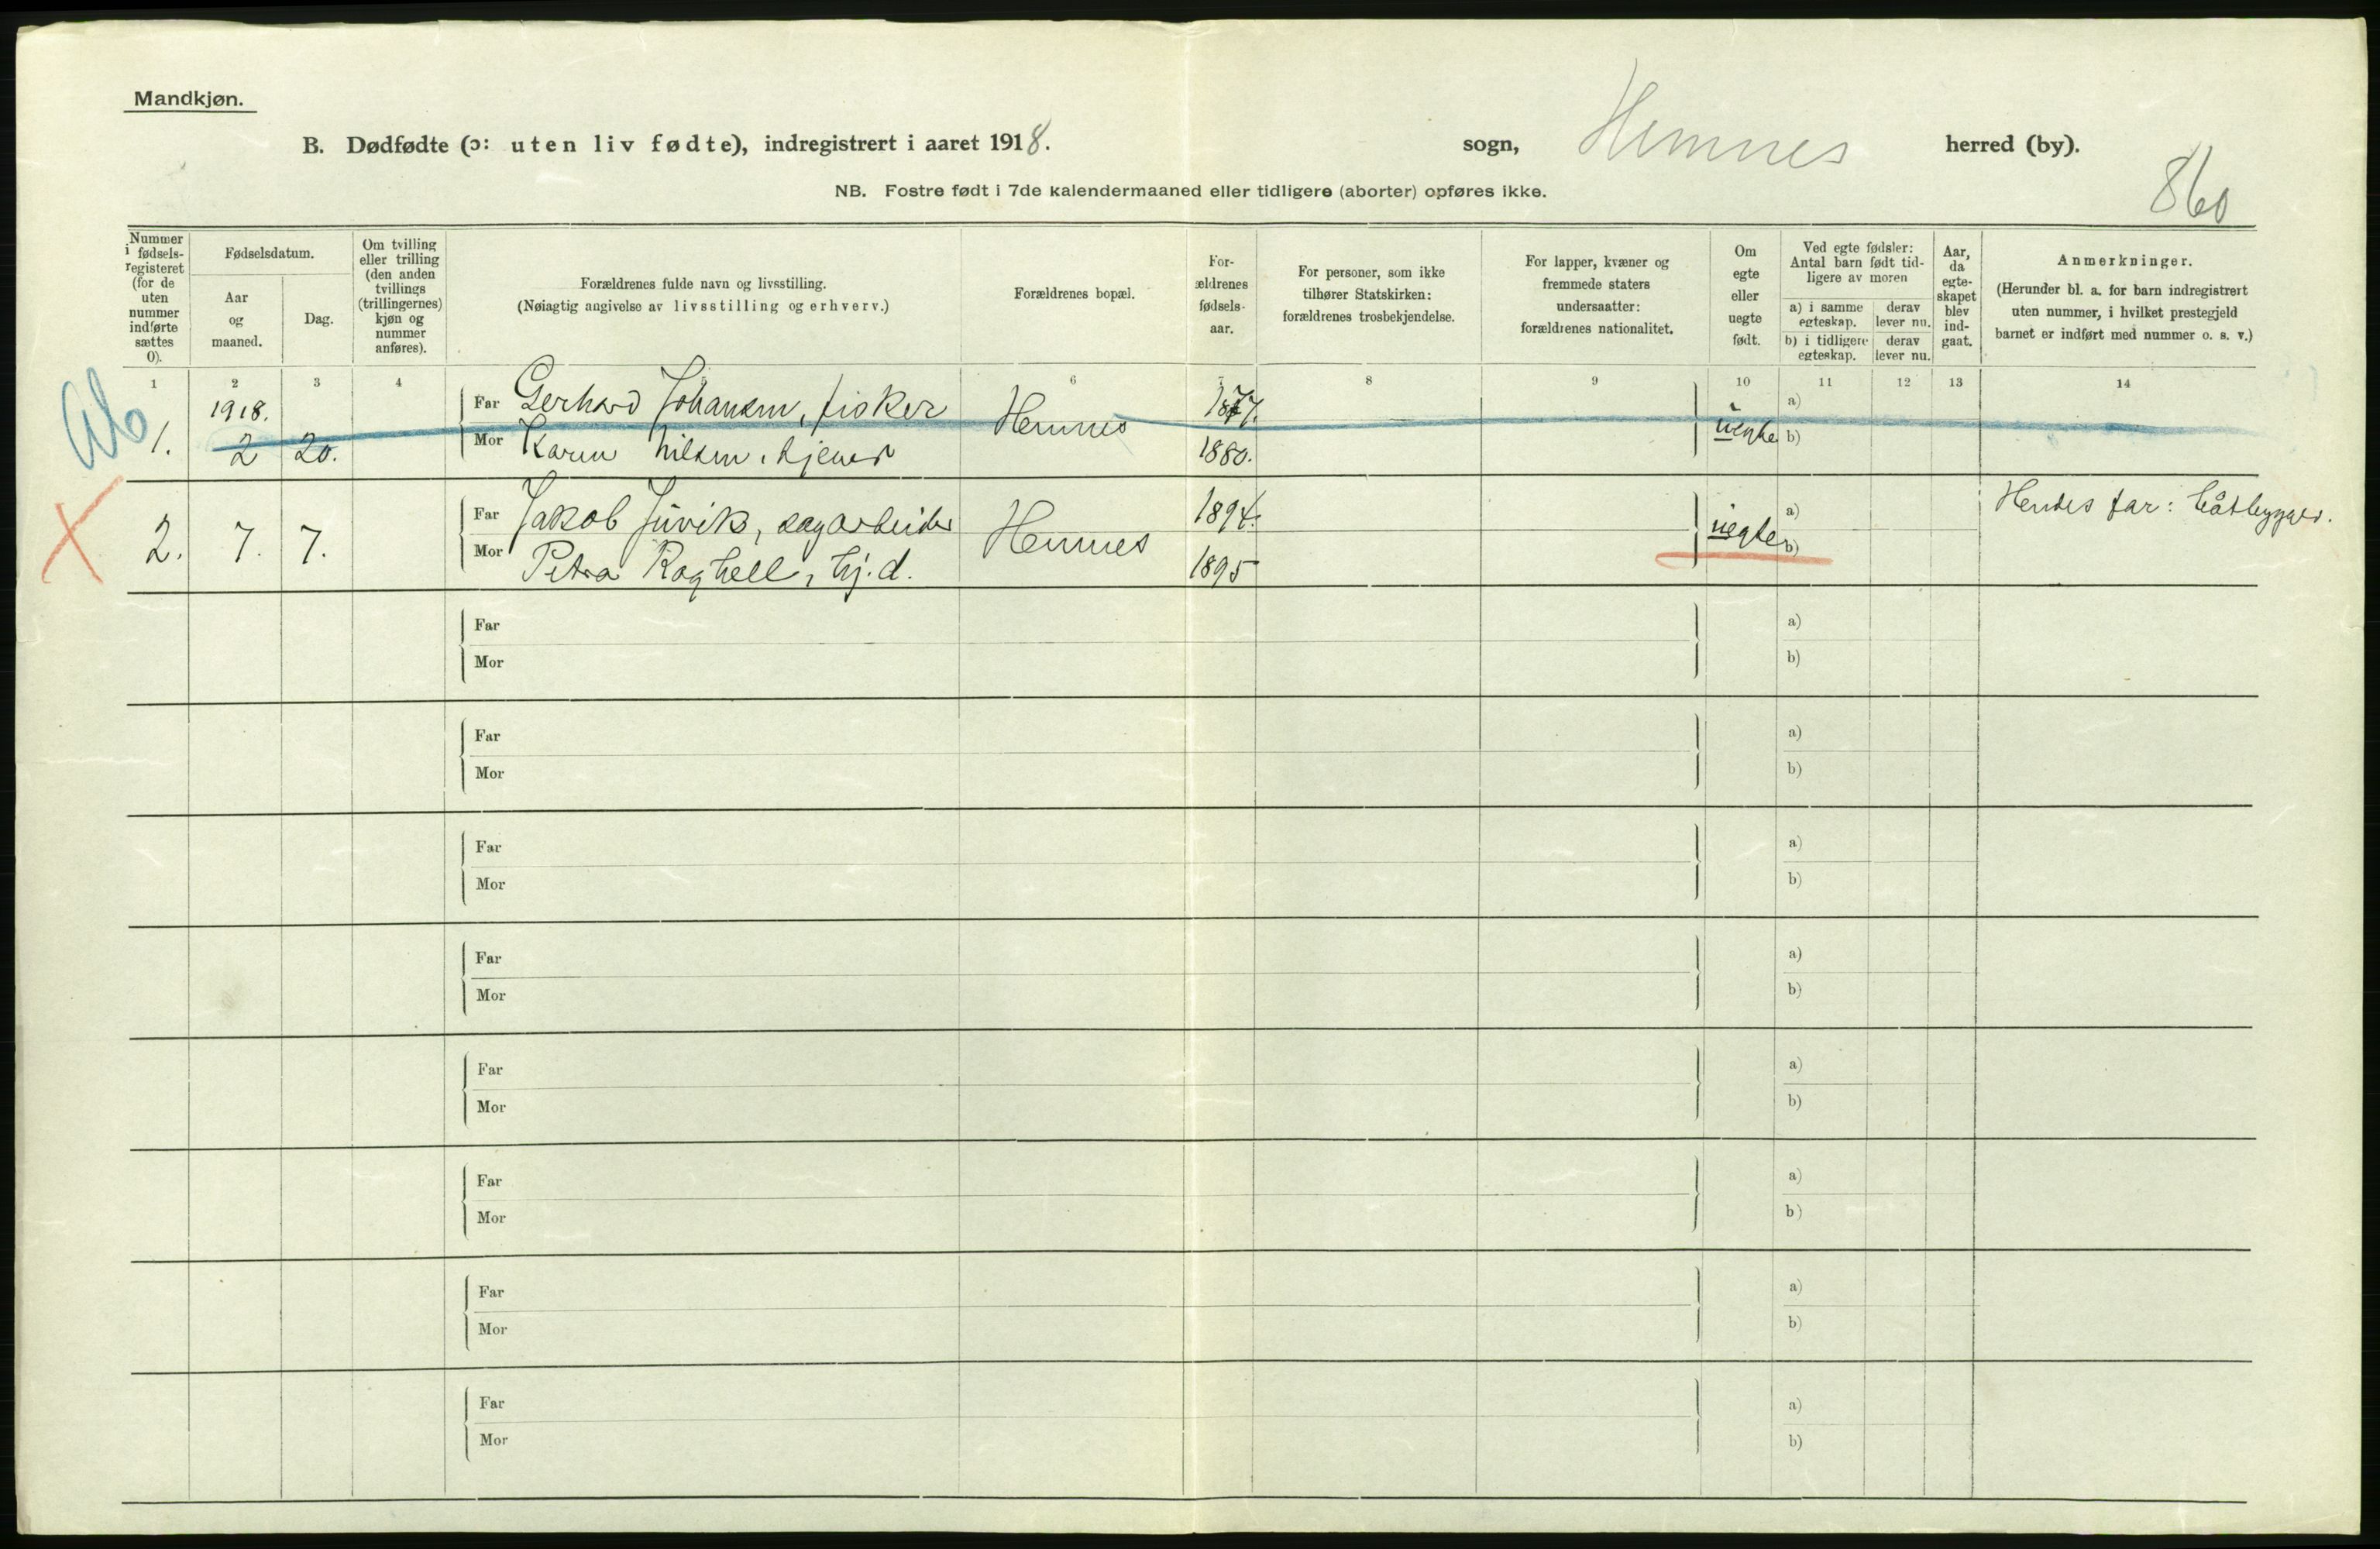 Mandkjøn.
B. Dødfødte (ɔ: uten liv fødte), indregistrert i aaret 1918.
sogn, Hemnes herred (by).
860
NB. Fostre født i 7de kalendermaaned eller tidligere (aborter) opføres ikke.
Nummer
i fødsels-
registeret
(for de
uten
nummer
indførte
sættes
0).
Fødselsdatum.
Aar
og
maaned.
Dag.
Om tvilling
eller trilling
(den anden
tvillings
(trillingernes)
kjøn og
nummer
anføres).
Forældrenes fulde navn og livsstilling.
(Nøiagtig angivelse av livsstilling og erhverv.)
Forældrenes bopæl.
For-
ældrenes
fødsels-
aar.
For personer, som ikke
tilhører Statskirken:
forældrenes trosbekjendelse.
For lapper, kvæner og
fremmede staters
undersaatter:
forældrenes nationalitet.
Om
egte
eller
uegte
født.
Ved egte fødsler:
Antal barn født tid-
ligere av moren
a) i samme
egteskap.
derav
lever nu.
b) i tidligere
egteskap.
derav
lever nu.
Aar,
da
egte-
skapet
blev
ind-
gaat.
Anmerkninger.
(Herunder bl. a. for barn indregistrert
uten nummer, i hvilket prestegjeld
barnet er indført med nummer o. s. v.)
1 2 3 4 6 8 9 10 11 12 13 14
Ab
1918.
Far Gerhard Johansen, fisker 1877. a)
1. 2 20. Hemnes uegte
Mor Karen Nilsen, tjener 1880. b)
Far Jakob Juvik, sagarbeider 1894. a) Hendes far: båtbygger.
X 2. 7. 7. Hemnes uegte
Mor Petra Raghell, tj.d. 1895 b)
Far a)
Mor b)
Far a)
Mor b)
Far a)
Mor b)
Far a)
Mor b)
Far a)
Mor b)
Far a)
Mor b)
Far a)
Mor b)
Far a)
Mor b)